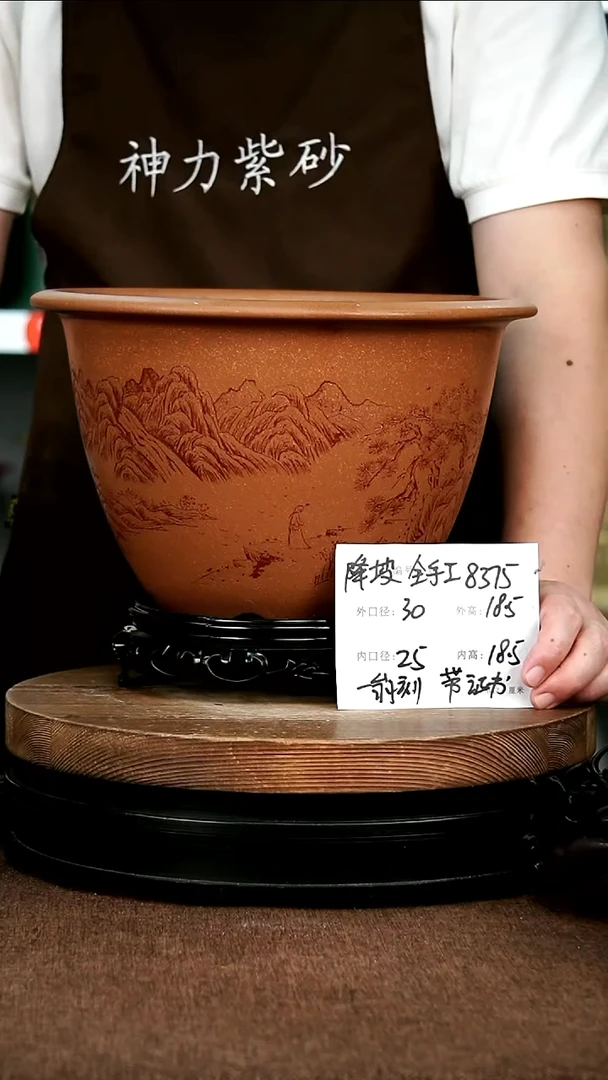 神力紫砂
降坡 全手工 8375
外口径: 30 外高: 185
内口径: 25 内高: 185
刻 带证书 厘米